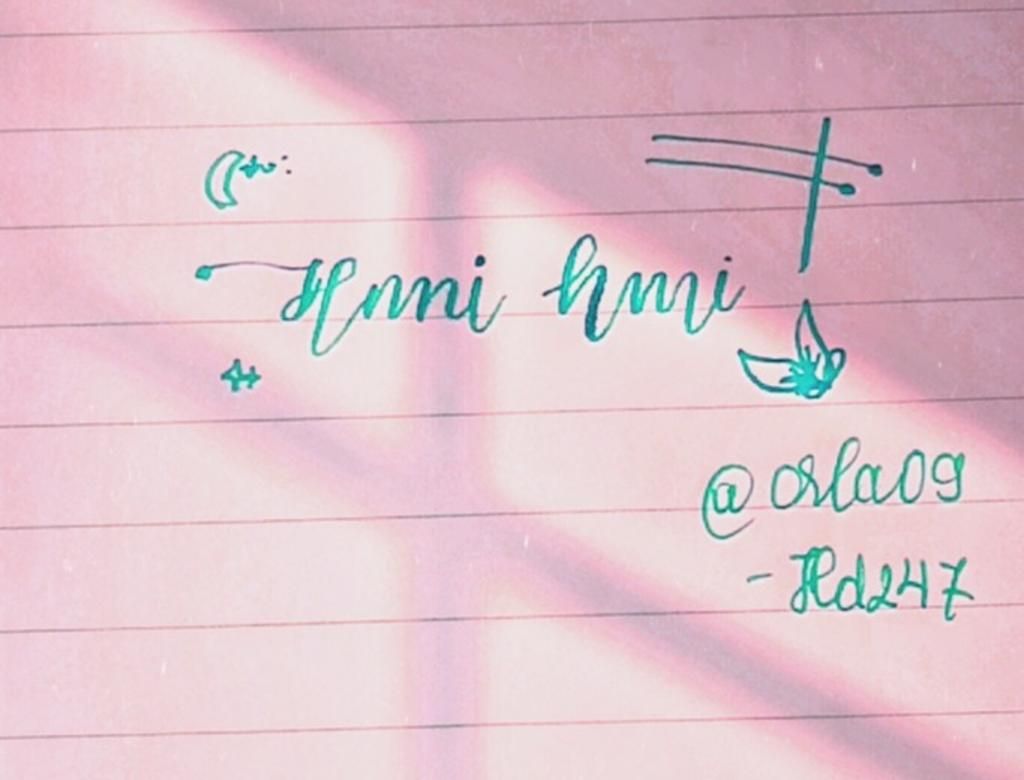 Hnni hmi
@orla09
- Hd247